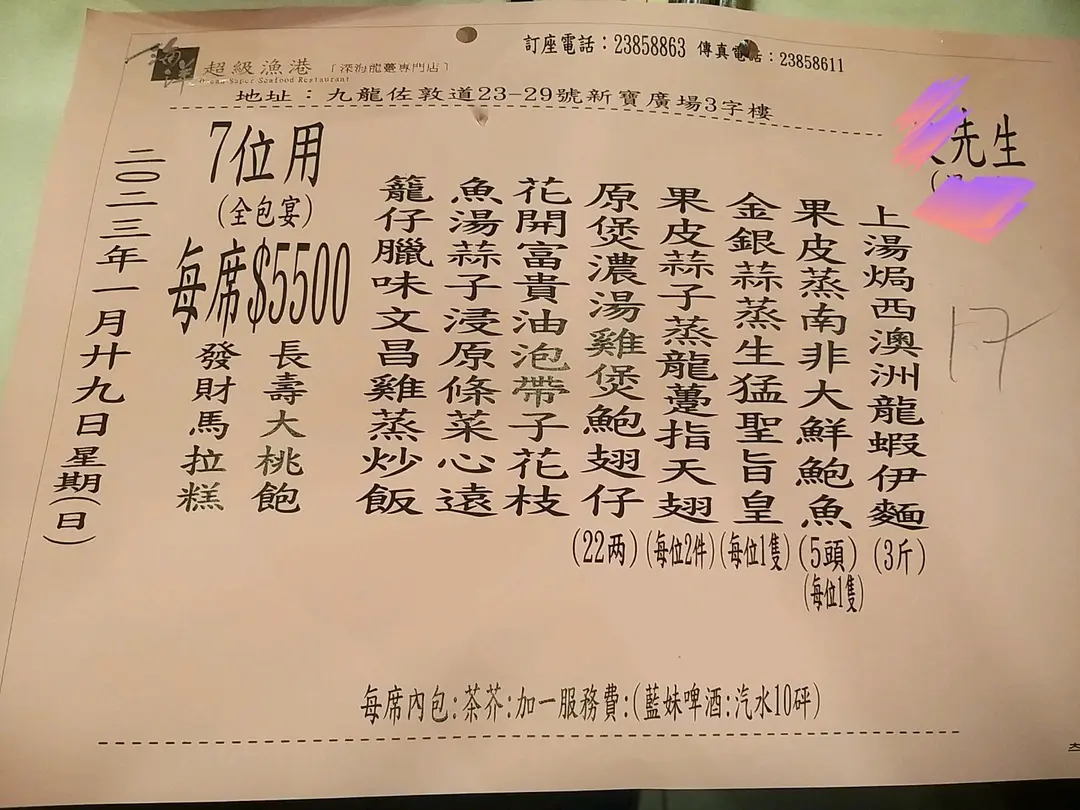 海洋
超級漁港 [深海龍躉專門店]
Ocean Super Seafood Restaurant
訂座電話：23858863 傳真電話：23858611
地址：九龍佐敦道23-29號新寶廣場3字樓
先生
17
上湯焗西澳洲龍蝦伊麵(3斤)
果皮蒸南非大鮮鮑魚(5頭)(每位1隻)
金銀蒜蒸生猛聖旨皇(每位1隻)
果皮蒜子蒸龍躉指天翅(每位2件)
原煲濃湯雞煲鮑翅仔(22两)
花開富貴油泡帶子花枝
魚湯蒜子浸原條菜心遠
籠仔臘味文昌雞蒸炒飯
7位用
(全包宴)
每席$5500
長壽大桃飽
發財馬拉糕
二〇二三年一月廿九日星期(日)
每席內包:茶芥:加一服務費:(藍妹啤酒:汽水10砰)